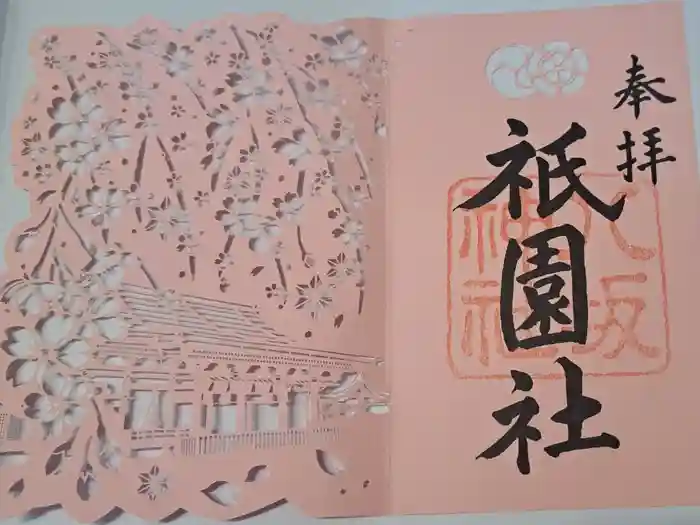 奉拝
祇園社
八坂
神社